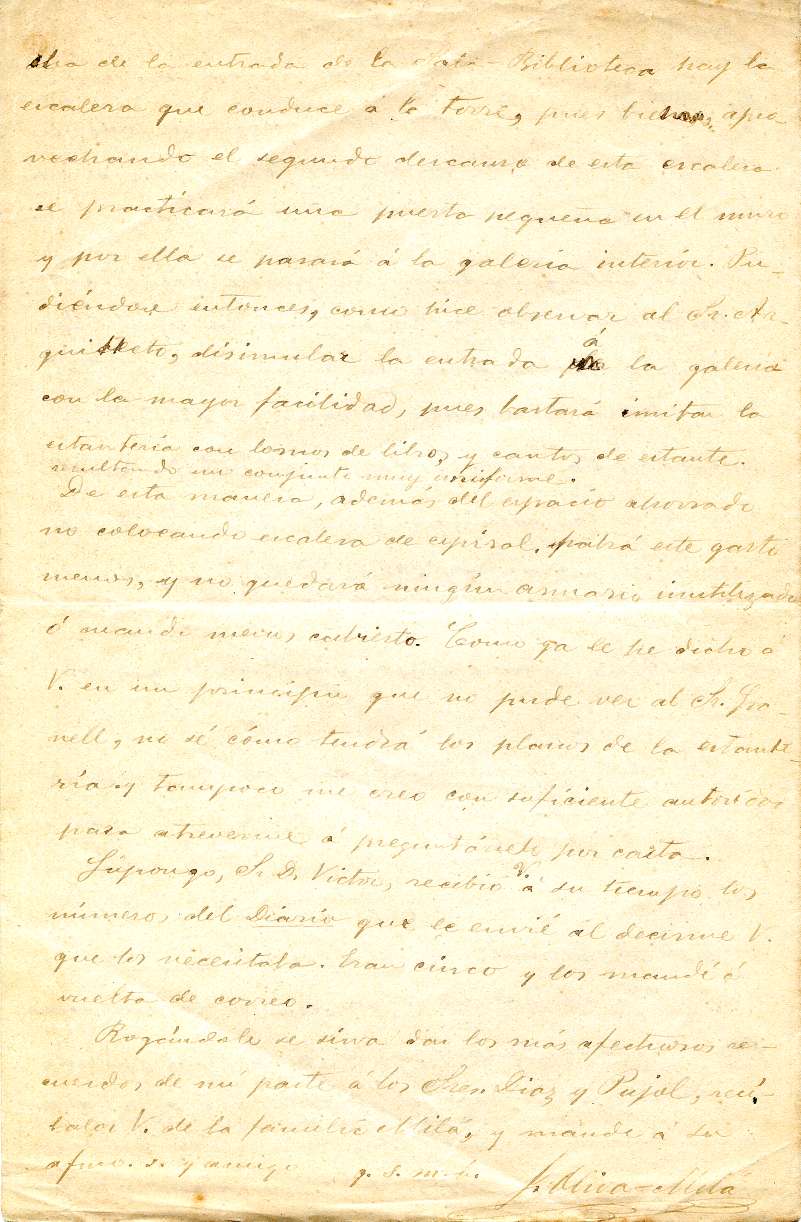 cha de la entrada de la Sala-Biblioteca hay la
escalera que conduce á la torre, pues bien, apro-
vechando el segundo descanso de esta escalera
se practicará una puerta pequeña en el muro
y por ella se pasará á la galería interior. Pu-
diéndose entonces, como hice observar al Sr. Ar-
quitecto, disimular la entrada á la galería
con la mayor facilidad, pues bastará imitar la
estantería con lomos de libros y cantos de estante.
resultando un conjunto muy uniforme.
De esta manera, además del espacio ahorrado
no colocando escalera de espiral, habrá este gasto
menos, y no quedará ningún armario inutilizado
ó cuando menos cubierto. Como ya le he dicho á
V. en un principio que no pude ver al Sr. Gra-
nell, no sé cómo tendrá los planos de la estante-
ría y tampoco me creo con suficiente autoridad
para atreverme á preguntárselo por carta.
Supongo, Sr. D. Victor, recibió V. á su tiempo los
números del Diario que le envié al decirme V.
que los necesitaba. Eran cinco y los mandé á
vuelta de correo.
Rogándole se sirva dar los más afectuosos re-
cuerdos de mi parte á los Sres. Diaz y Pujol, recí-
balos V. de la familia Milá, y mande á su
afmo. s. y amigo q. s. m. b. J. Oliva-Milá